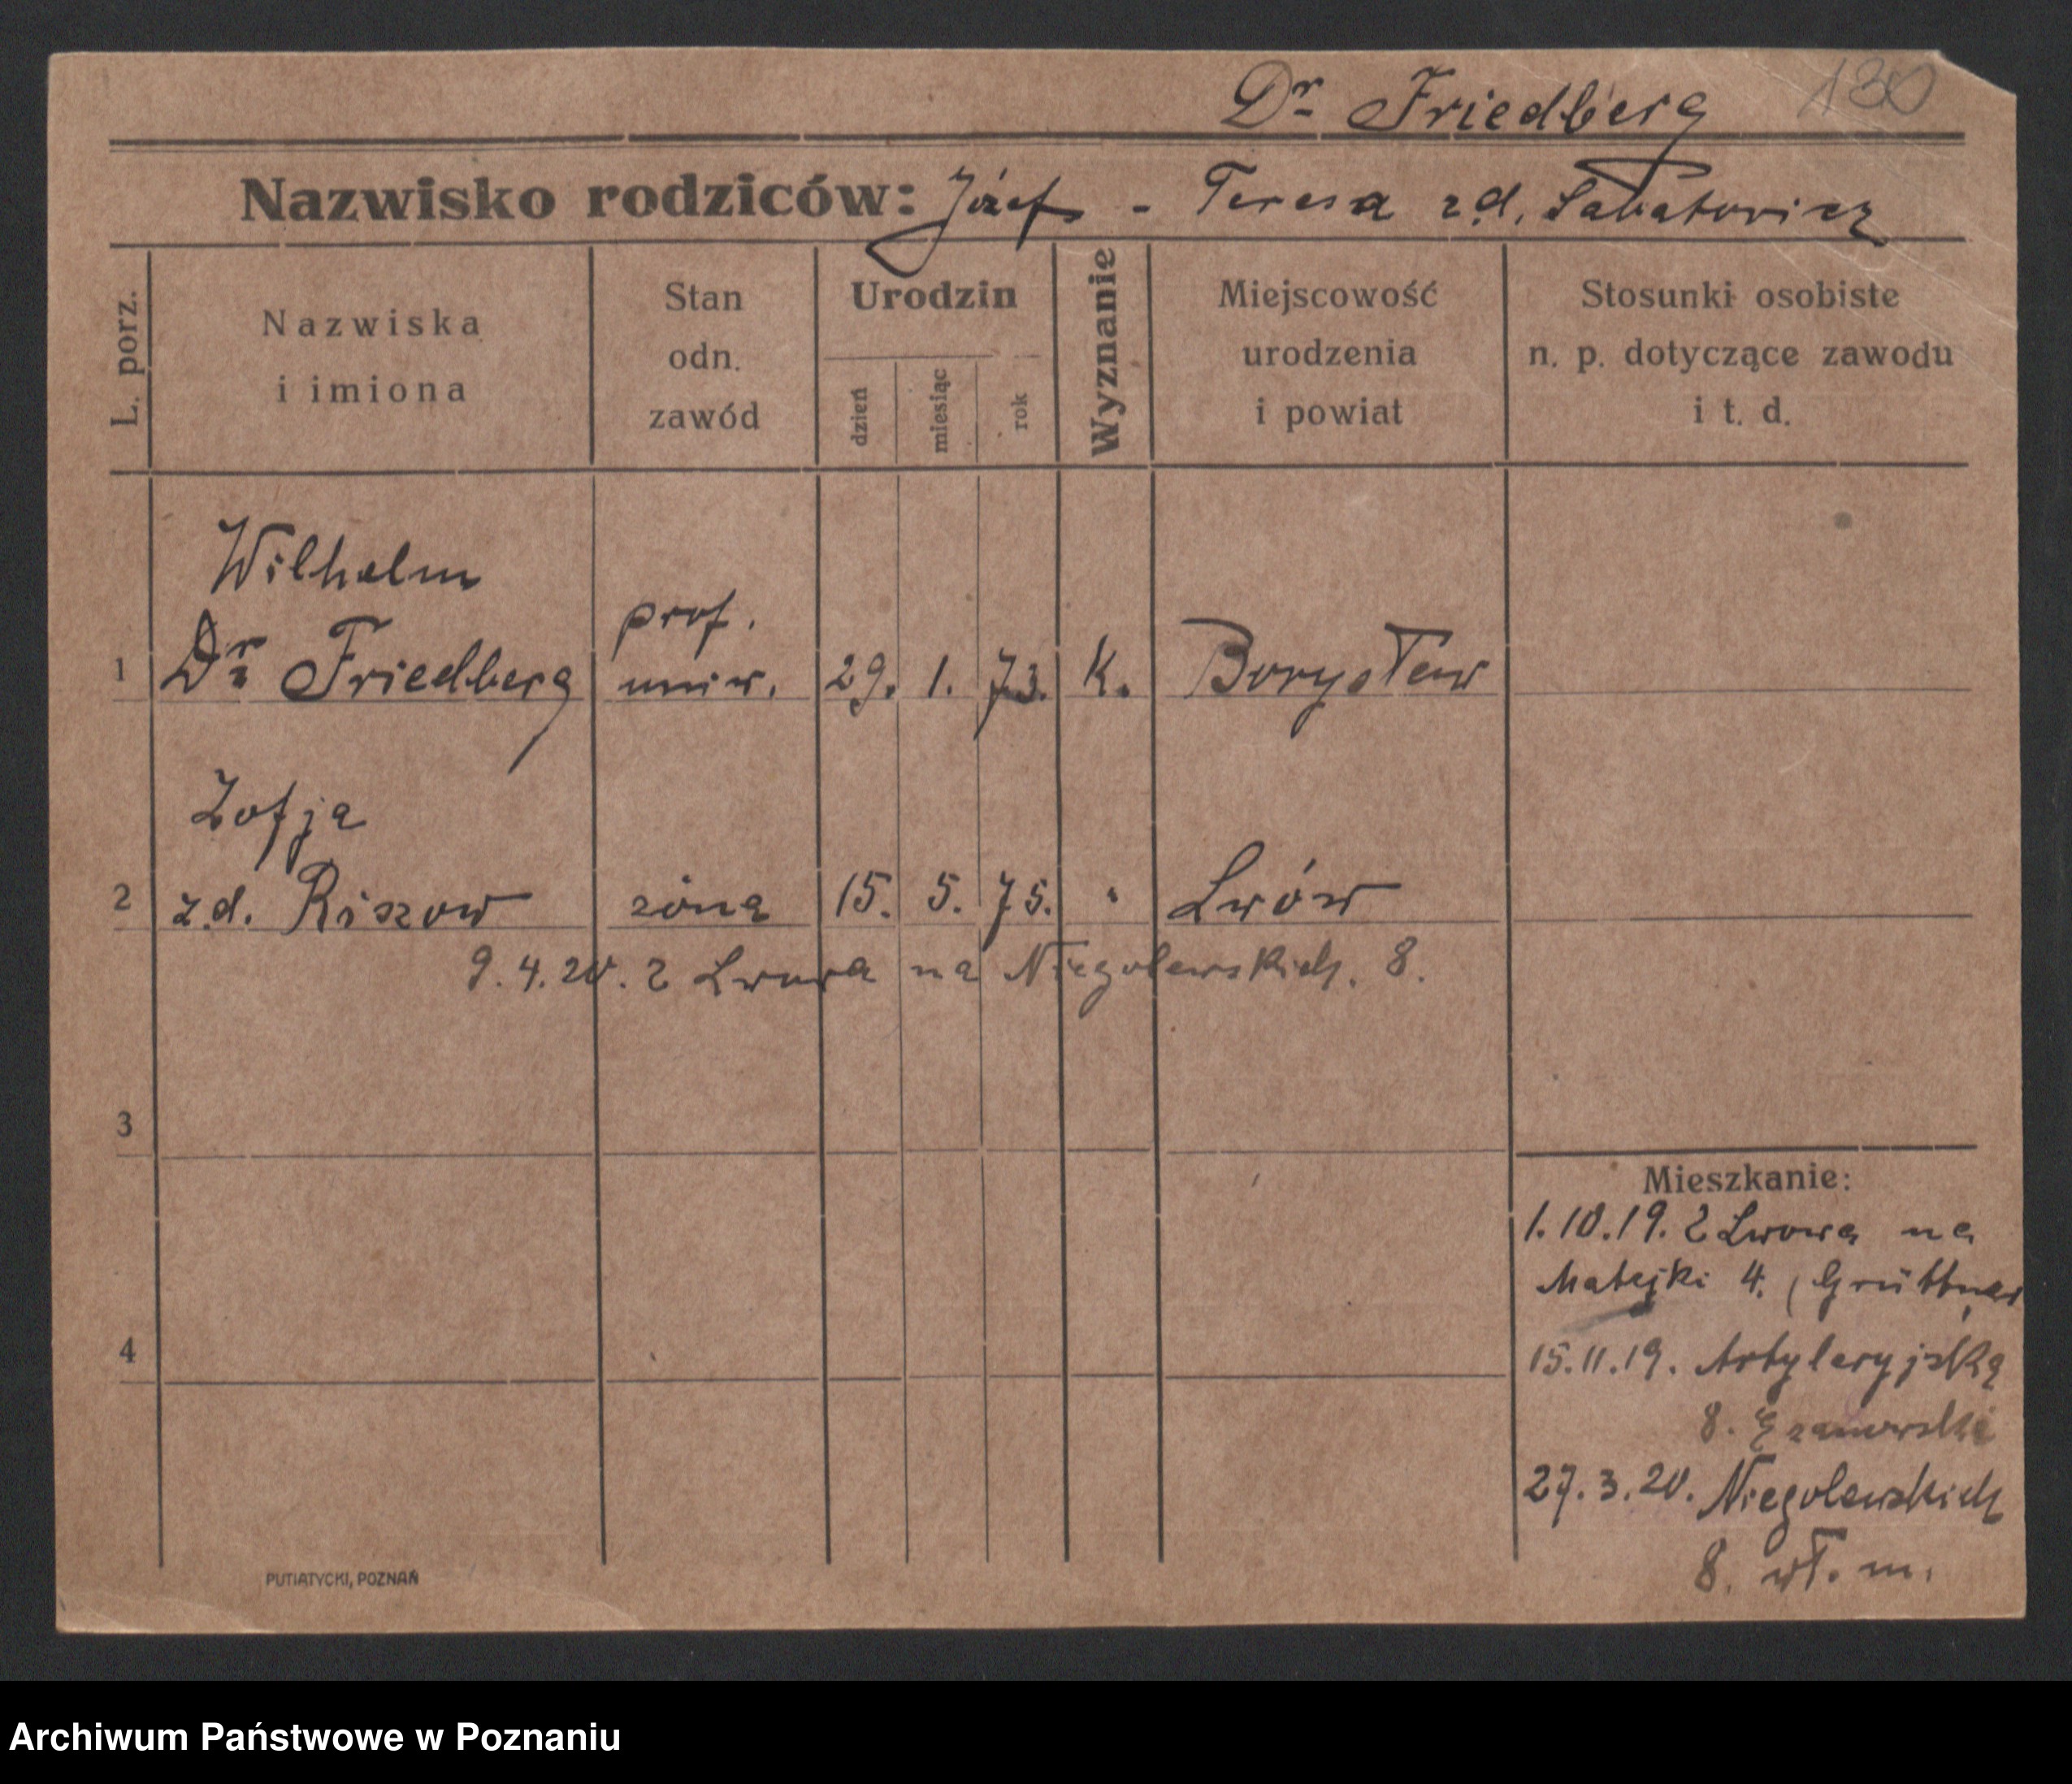 Dr Friedberg 130
Nazwisko rodziców: Józef - Teresa z d. Sabatowicz
L. porz.
Nazwiska
i imiona
Stan
odn.
zawód
Urodzin
dzień
miesiąc
rok
Wyznanie
Miejscowość
urodzenia
i powiat
Stosunki osobiste
n. p. dotyczące zawodu
i t. d.
Wilhelm
1 Dr Friedberg prof. uniw. 29. 1. 73. K. Borysław
Zofja
2 z.d. Riszow żona 15. 5. 75. " Lwów
9.4.20. z Lwowa na Niegolewskich. 8.
3
4
Mieszkanie:
1.10.19. z Lwowa na
Matejki 4. (Grüttner
15.11.19. Artyleryjską
8.
27.3.20. Niegolewskich
8. wł. m.
PUTIATYCKI, POZNAŃ
Archiwum Państwowe w Poznaniu